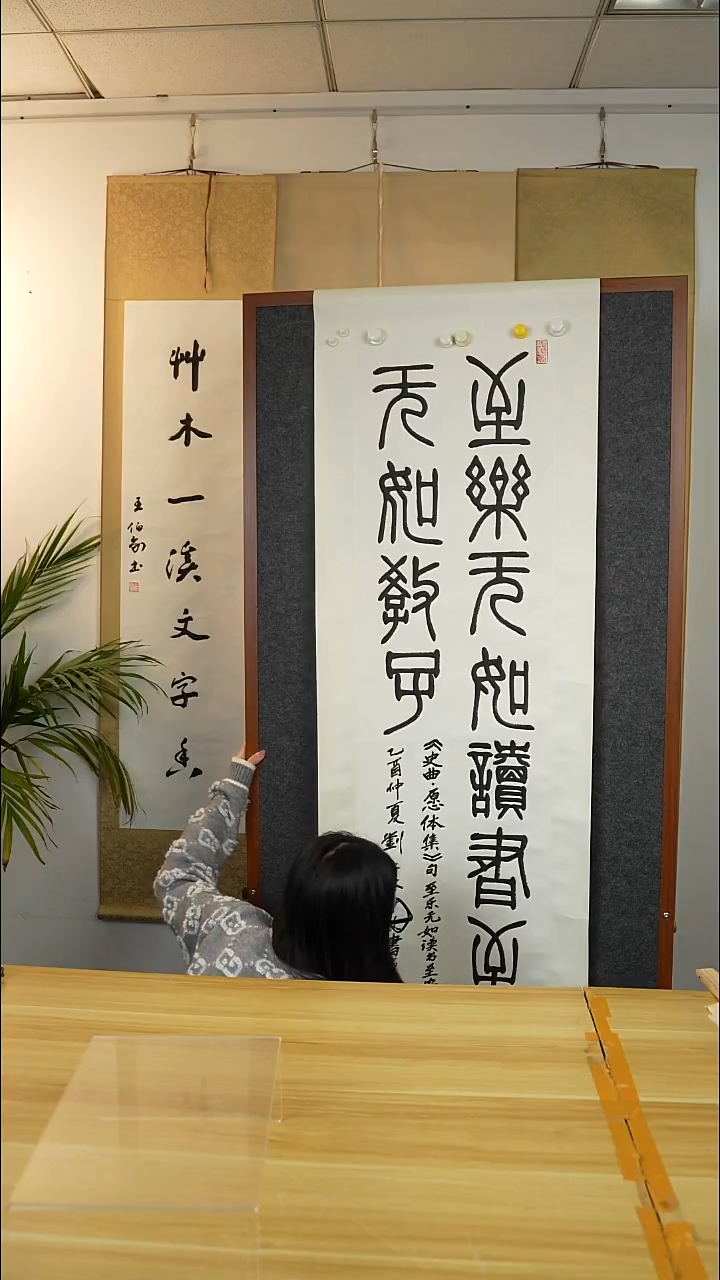 至樂无如讀書至
无如教子
《史典·愿体集》句至乐无如读书至
乙酉仲夏劉
艸木一溪文字香
王伯敏书